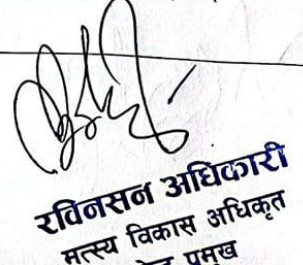 रविनसन अधिकारी
मत्स्य विकास अधिकृत
प्रमुख